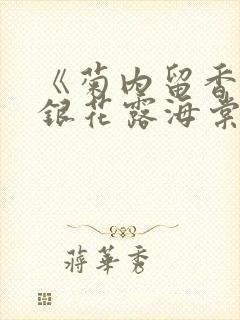 《菊内留香
銀花露海棠
蔣華秀